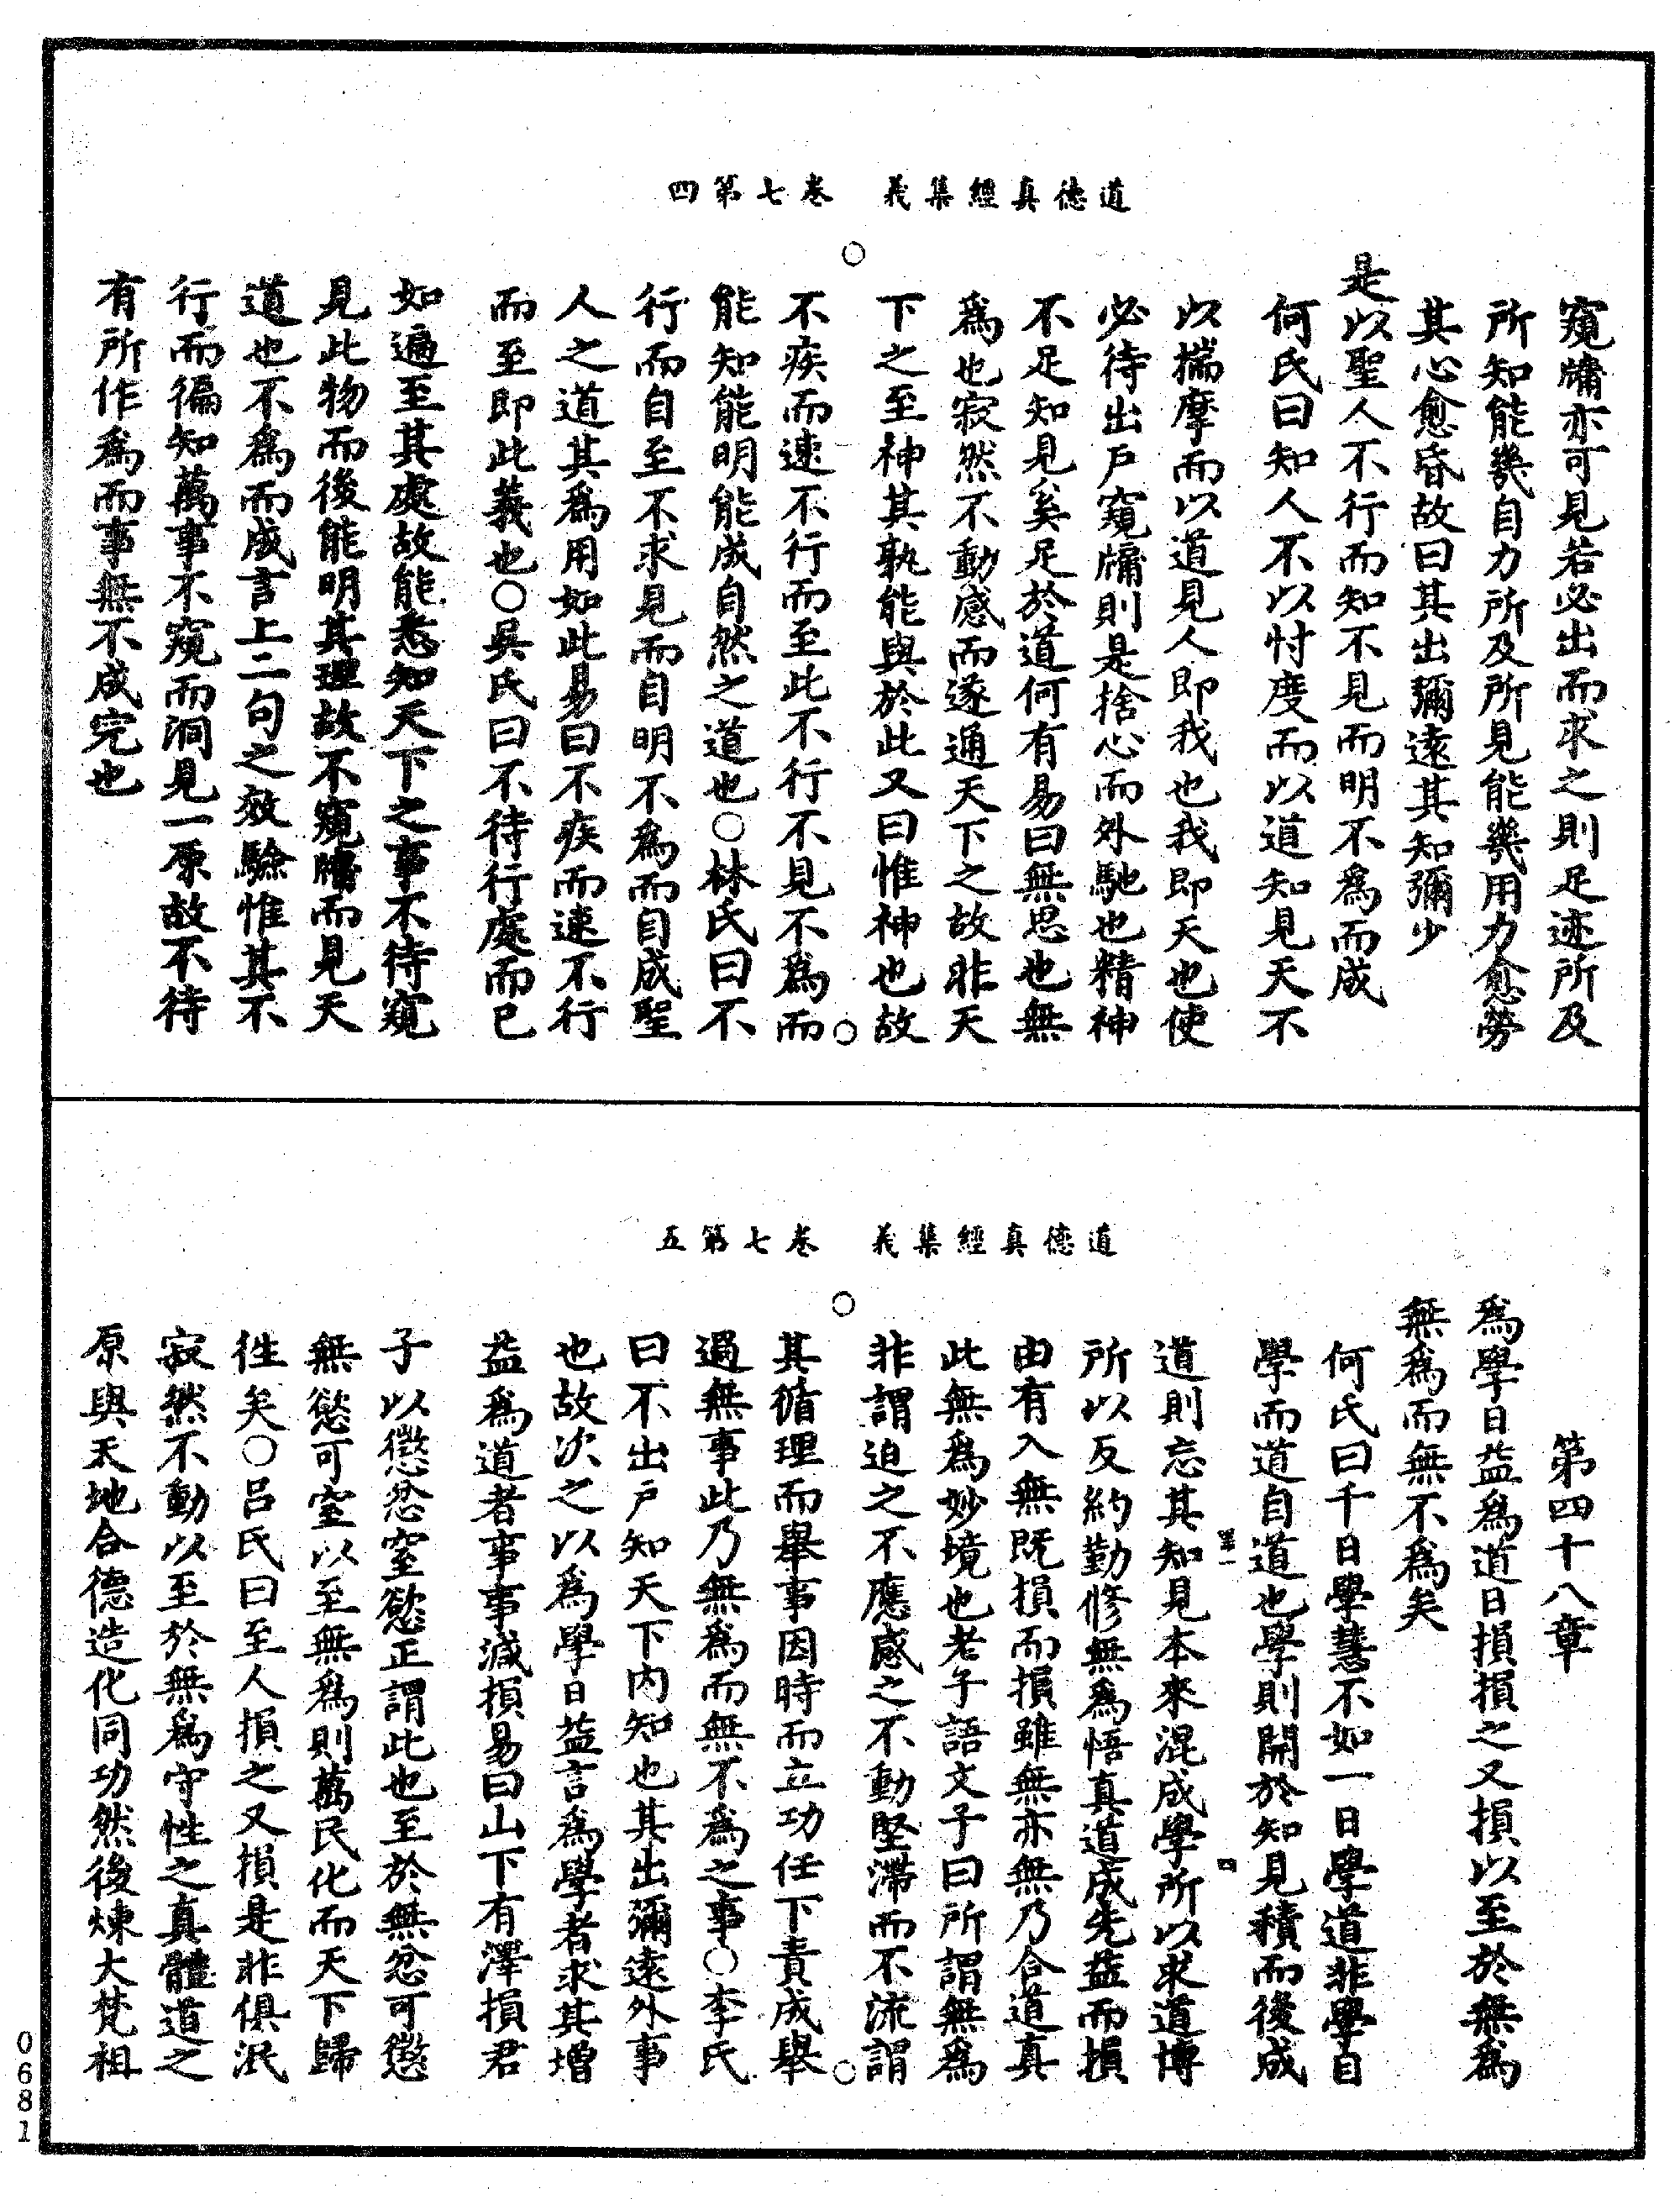 道德真經集義　卷七第四
窺牖亦可見若必出而求之則足迹所及
所知能幾自力所及所見能幾用力愈勞
其心愈昏故曰其出彌遠其知彌少
是以聖人不行而知不見而明不爲而成
何氏曰知人不以忖度而以道知見天不
以揣摩而以道見人即我也我即天也使
必待出戶窺牖則是捨心而外馳也精神
不足知見奚足於道何有易曰無思也無
爲也寂然不動感而遂通天下之故非天
下之至神其孰能與於此又曰惟神也故
不疾而速不行而至此不行不見不爲而
能知能明能成自然之道也○林氏曰不
行而自至不求見而自明不爲而自成聖
人之道其爲用如此易曰不疾而速不行
而至即此義也○吳氏曰不待行處而已
如遍至其處故能悉知天下之事不待窺
見此物而後能明其理故不窺牖而見天
道也不爲而成言上二句之效驗惟其不
行而徧知萬事不窺而洞見一原故不待
有所作爲而事無不成完也
道德真經集義　卷七第五
第四十八章
爲學日益爲道日損損之又損以至於無爲
無爲而無不爲矣
何氏曰千日學慧不如一日學道非學自
學而道自道也學則開於知見積而後成
道則忘其知見本來混成學所以求道博
所以反約勤修無爲悟真道成先益而損
由有入無既損而損雖無亦無乃合道真
此無爲妙境也老子語文子曰所謂無爲
非謂迫之不應感之不動堅滯而不流謂
其循理而舉事因時而立功任下責成舉
過無事此乃無爲而無不爲之事○李氏
曰不出戶知天下內知也其出彌遠外事
也故次之以爲學日益言爲學者求其增
益爲道者事事減損易曰山下有澤損君
子以懲忿窒慾正謂此也至於無忿可懲
無慾可窒以至無爲則萬民化而天下歸
往矣○呂氏曰至人損之又損是非俱泯
寂然不動以至於無爲守性之真體道之
原與天地合德造化同功然後煉大梵祖
0681